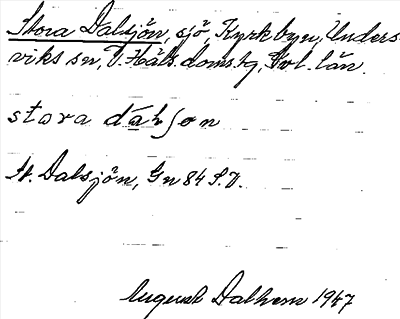 Stora Dalsjön, sjö, Kyrkbyn, Unders-
viks sn, V. Häls. doms.tg, Gvl. län.
stora dɑ̄lʃon
St. Dalsjön, Gn 84 S.V.
August Dalhem 1947